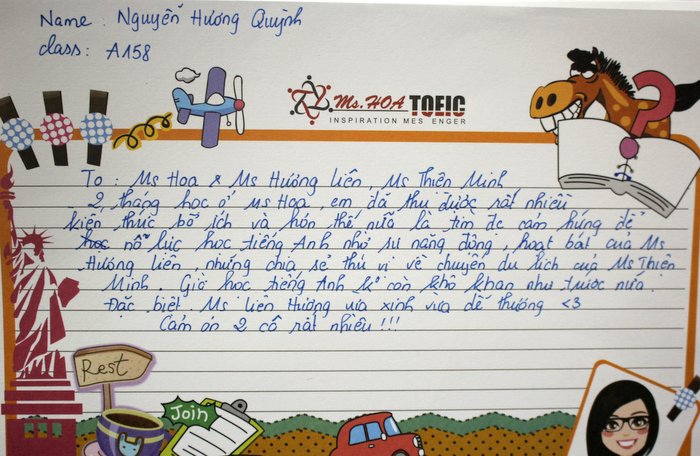 Name : Nguyễn Hương Quỳnh
class : A158
Ms. HOA TOEIC
INSPIRATION MES ENGER
To : Ms Hoa & Ms Hương Liên, Ms Thiên Minh
2 tháng học ở Ms Hoa, em đã thu được rất nhiều
kiến thức bổ ích và hơn thế nữa là tìm đc cảm hứng để
học nỗ lực học tiếng Anh nhờ sự năng động, hoạt bát của Ms
Hương Liên, những chia sẻ thú vị về chuyến du lịch của Ms Thiên
Minh. Giờ học tiếng Anh k còn khô khan như trước nữa.
Đặc biệt Ms Liên Hương vừa xinh vừa dễ thương <3
Cảm ơn 2 cô rất nhiều !!!
Rest
Join